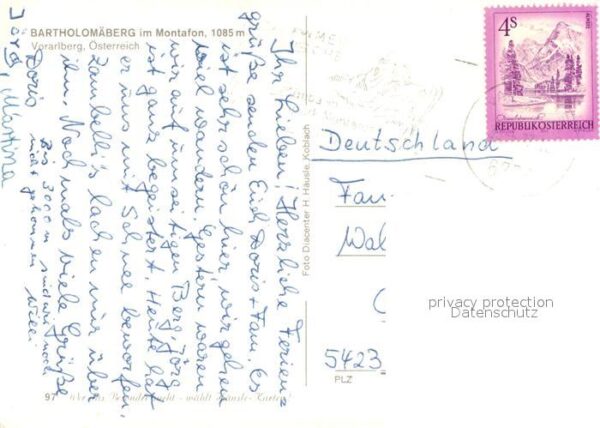 BARTHOLOMÄBERG im Montafon, 1085 m
Vorarlberg, Österreich
Ihr Lieben! Herrliche Ferien=
grüße senden Euch Doris + Fam. Es
ist sehr schön hier, wir gehen
viel wandern. Gestern waren
wir auf einem Berg, Jörg
ist ganz begeistert. Heute hat
er uns mit Schnee beworfen.
Zambelli's lachen nur über
ihn. Nochmals viele Grüße
Doris
Bis 3000 m sind wir noch
nicht gekommen Willi
Jörg, Martina
Foto Diacenter H. Häusle, Koblach
4S
REPUBLIK ÖSTERREICH
Deutschland
Fam
Wal
5423
PLZ
privacy protection
Datenschutz
97